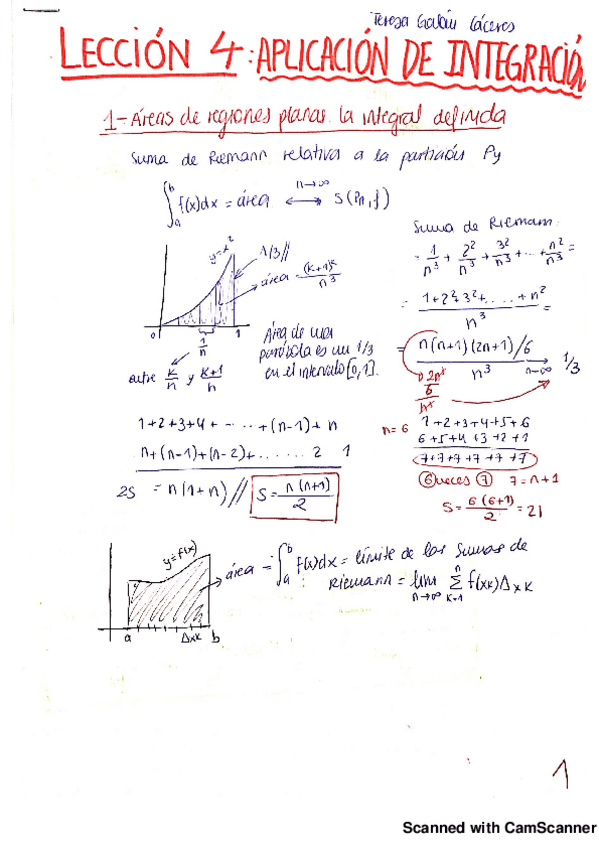 Teresa Galán Cáceres
LECCIÓN 4: APLICACIÓN DE INTEGRACIÓN
1-Áreas de regiones planas. la integral definida
Suma de Riemann relativa a la partición Py
∫_a^b f(x)dx = área ⟷ S(Pn, f)
n→∞
Suma de Riemann:
= 1/n³ + 2²/n³ + 3²/n³ + ... + n²/n³ =
= 1+2²+3²+. . . . + n² / n³ =
= n(n+1)(2n+1)/6 / n³ → n→∞ 1/3
2n³/6 / n³
y=x²
1/3//
área = (k+1)²/n³
0 1/n 1
entre k/n y k+1/n
Área de una
parábola es un 1/3
en el intervalo [0,1].
1+2+3+4+ - - . . + (n-1) + n
n+(n-1)+(n-2)+. . . . . . 2 1
2S = n(1+n)// S = n(n+1)/2
n=6 1+2+3+4+5+6
6+5+4+3+2+1
7+7+7+7+7+7
6 veces 7 7=n+1
S = 6(6+1)/2 = 21
y=f(x)
área = ∫_a^b f(x)dx = límite de las sumas de
Riemann = lim n→∞ Σ_{k=1}^n f(xk)Δxk
a Δxk b
1
Scanned with CamScanner